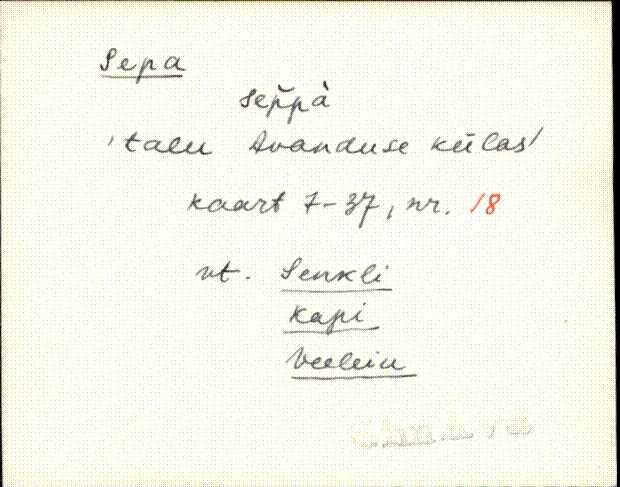 Sepa
sep̆pà
'talu Avanduse külas'
kaart 7-37, nr. 18
vt. Senkli
Kapi